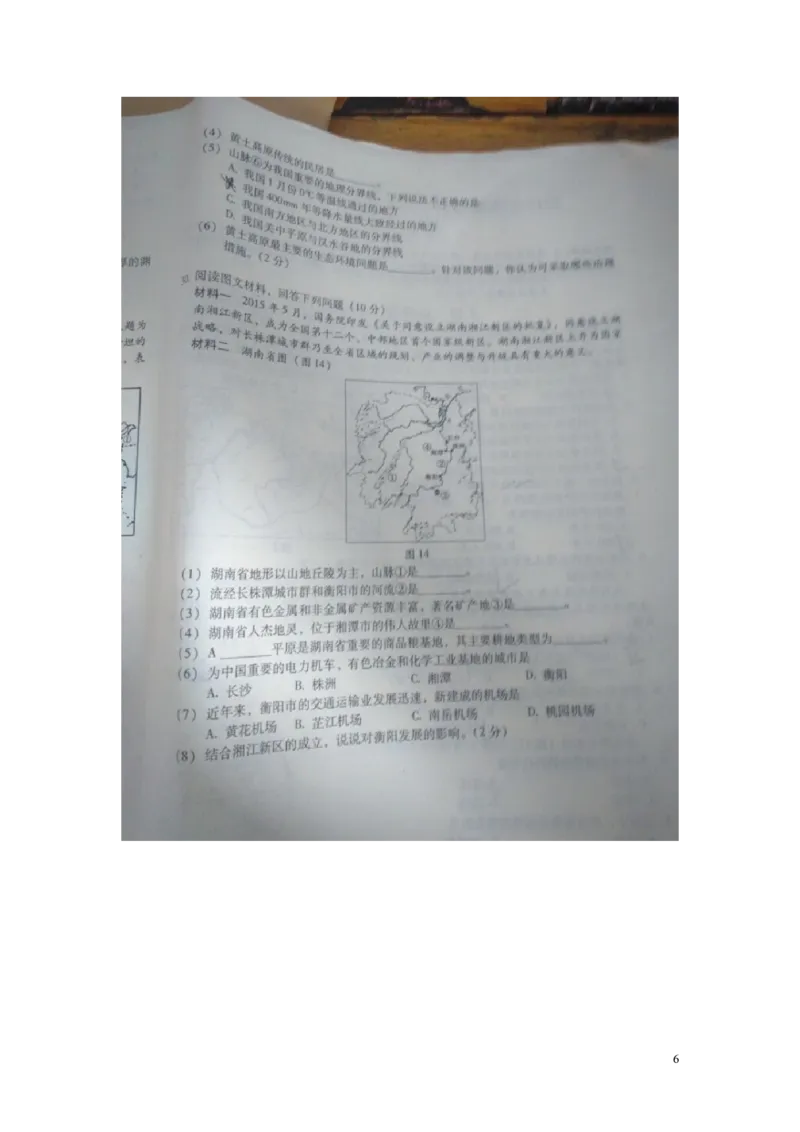 (4) 黄土高原传统的民居是________。
(5) 山脉⑥为我国重要的地理分界线，下列说法不正确的是
A. 我国1月份0℃等温线通过的地方
我国400mm年等降水量线大致经过的地方
C. 我国南方地区与北方地区的分界线
D. 我国关中平原与汉水谷地的分界线
(6) 黄土高原最主要的生态环境问题是________，针对该问题，你认为可采取哪些治理
措施。(2分)
阅读图文材料，回答下列问题（10分）
材料一 2015年5月，国务院印发《关于同意设立湖南湘江新区的批复》，同意设立湖
南湘江新区，成为全国第十二个、中部地区首个国家级新区。湖南湘江新区上升为国家
战略，对长株潭城市群乃至全省区域的规划、产业的调整与升级具有重大的意义。
材料二 湖南省图（图14）
④
②
①
③
图14
(1) 湖南省地形以山地丘陵为主，山脉①是________。
(2) 流经长株潭城市群和衡阳市的河流②是________。
(3) 湖南省有色金属和非金属矿产资源丰富，著名矿产地③是________。
(4) 湖南省人杰地灵，位于湘潭市的伟人故里④是________。
(5) A ________平原是湖南省重要的商品粮基地，其主要耕地类型为________。
(6) 为中国重要的电力机车、有色冶金和化学工业基地的城市是
A. 长沙 B. 株洲 C. 湘潭 D. 衡阳
(7) 近年来，衡阳市的交通运输业发展迅速，新建成的机场是
A. 黄花机场 B. 芷江机场 C. 南岳机场 D. 桃园机场
(8) 结合湘江新区的成立，说说对衡阳发展的影响。(2分)
的
题为
担的
，表
6